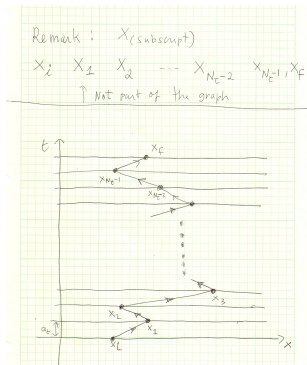 Remark : X(subscript)
Xi X1 X2 --- XNt-2 XNt-1, Xf
↑ Not part of the graph
t
xf
xNt-1
xNt-2
x3
x2
x1
at
xi
x